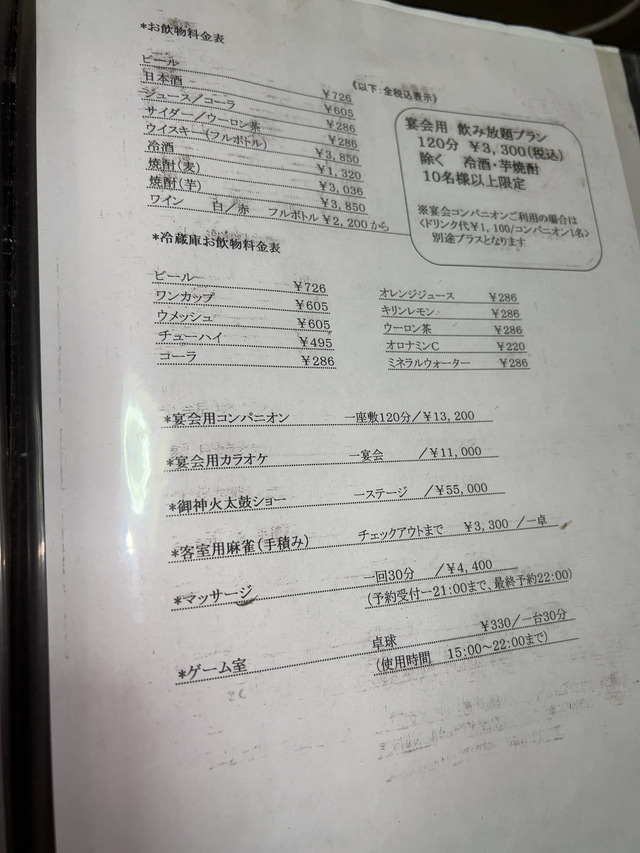 *お飲物料金表
(以下:全税込表示)
ビール ¥726
日本酒 ¥605
ジュース/コーラ ¥286
サイダー/ウーロン茶 ¥286
ウイスキー (フルボトル) ¥3,850
冷酒 ¥1,320
焼酎(麦) ¥3,036
焼酎(芋) ¥3,850
ワイン 白/赤 フルボトル ¥2,200から
宴会用 飲み放題プラン
120分 ¥3,300(税込)
除く 冷酒・芋焼酎
10名様以上限定
※宴会コンパニオンご利用の場合は
<ドリンク代¥1,100/コンパニオン1名>
別途プラスとなります
*冷蔵庫お飲物料金表
ビール ¥726
ワンカップ ¥605
ウメッシュ ¥605
チューハイ ¥495
コーラ ¥286
オレンジジュース ¥286
キリンレモン ¥286
ウーロン茶 ¥286
オロナミンC ¥220
ミネラルウォーター ¥286
*宴会用コンパニオン 一座敷120分/¥13,200
*宴会用カラオケ 一宴会 /¥11,000
*御神火太鼓ショー 一ステージ /¥55,000
*客室用麻雀(手積み) チェックアウトまで ¥3,300 /一卓
*マッサージ 一回30分 /¥4,400
(予約受付ー21:00まで、最終予約22:00)
*ゲーム室 卓球 ¥330/一台30分
(使用時間 15:00~22:00まで)